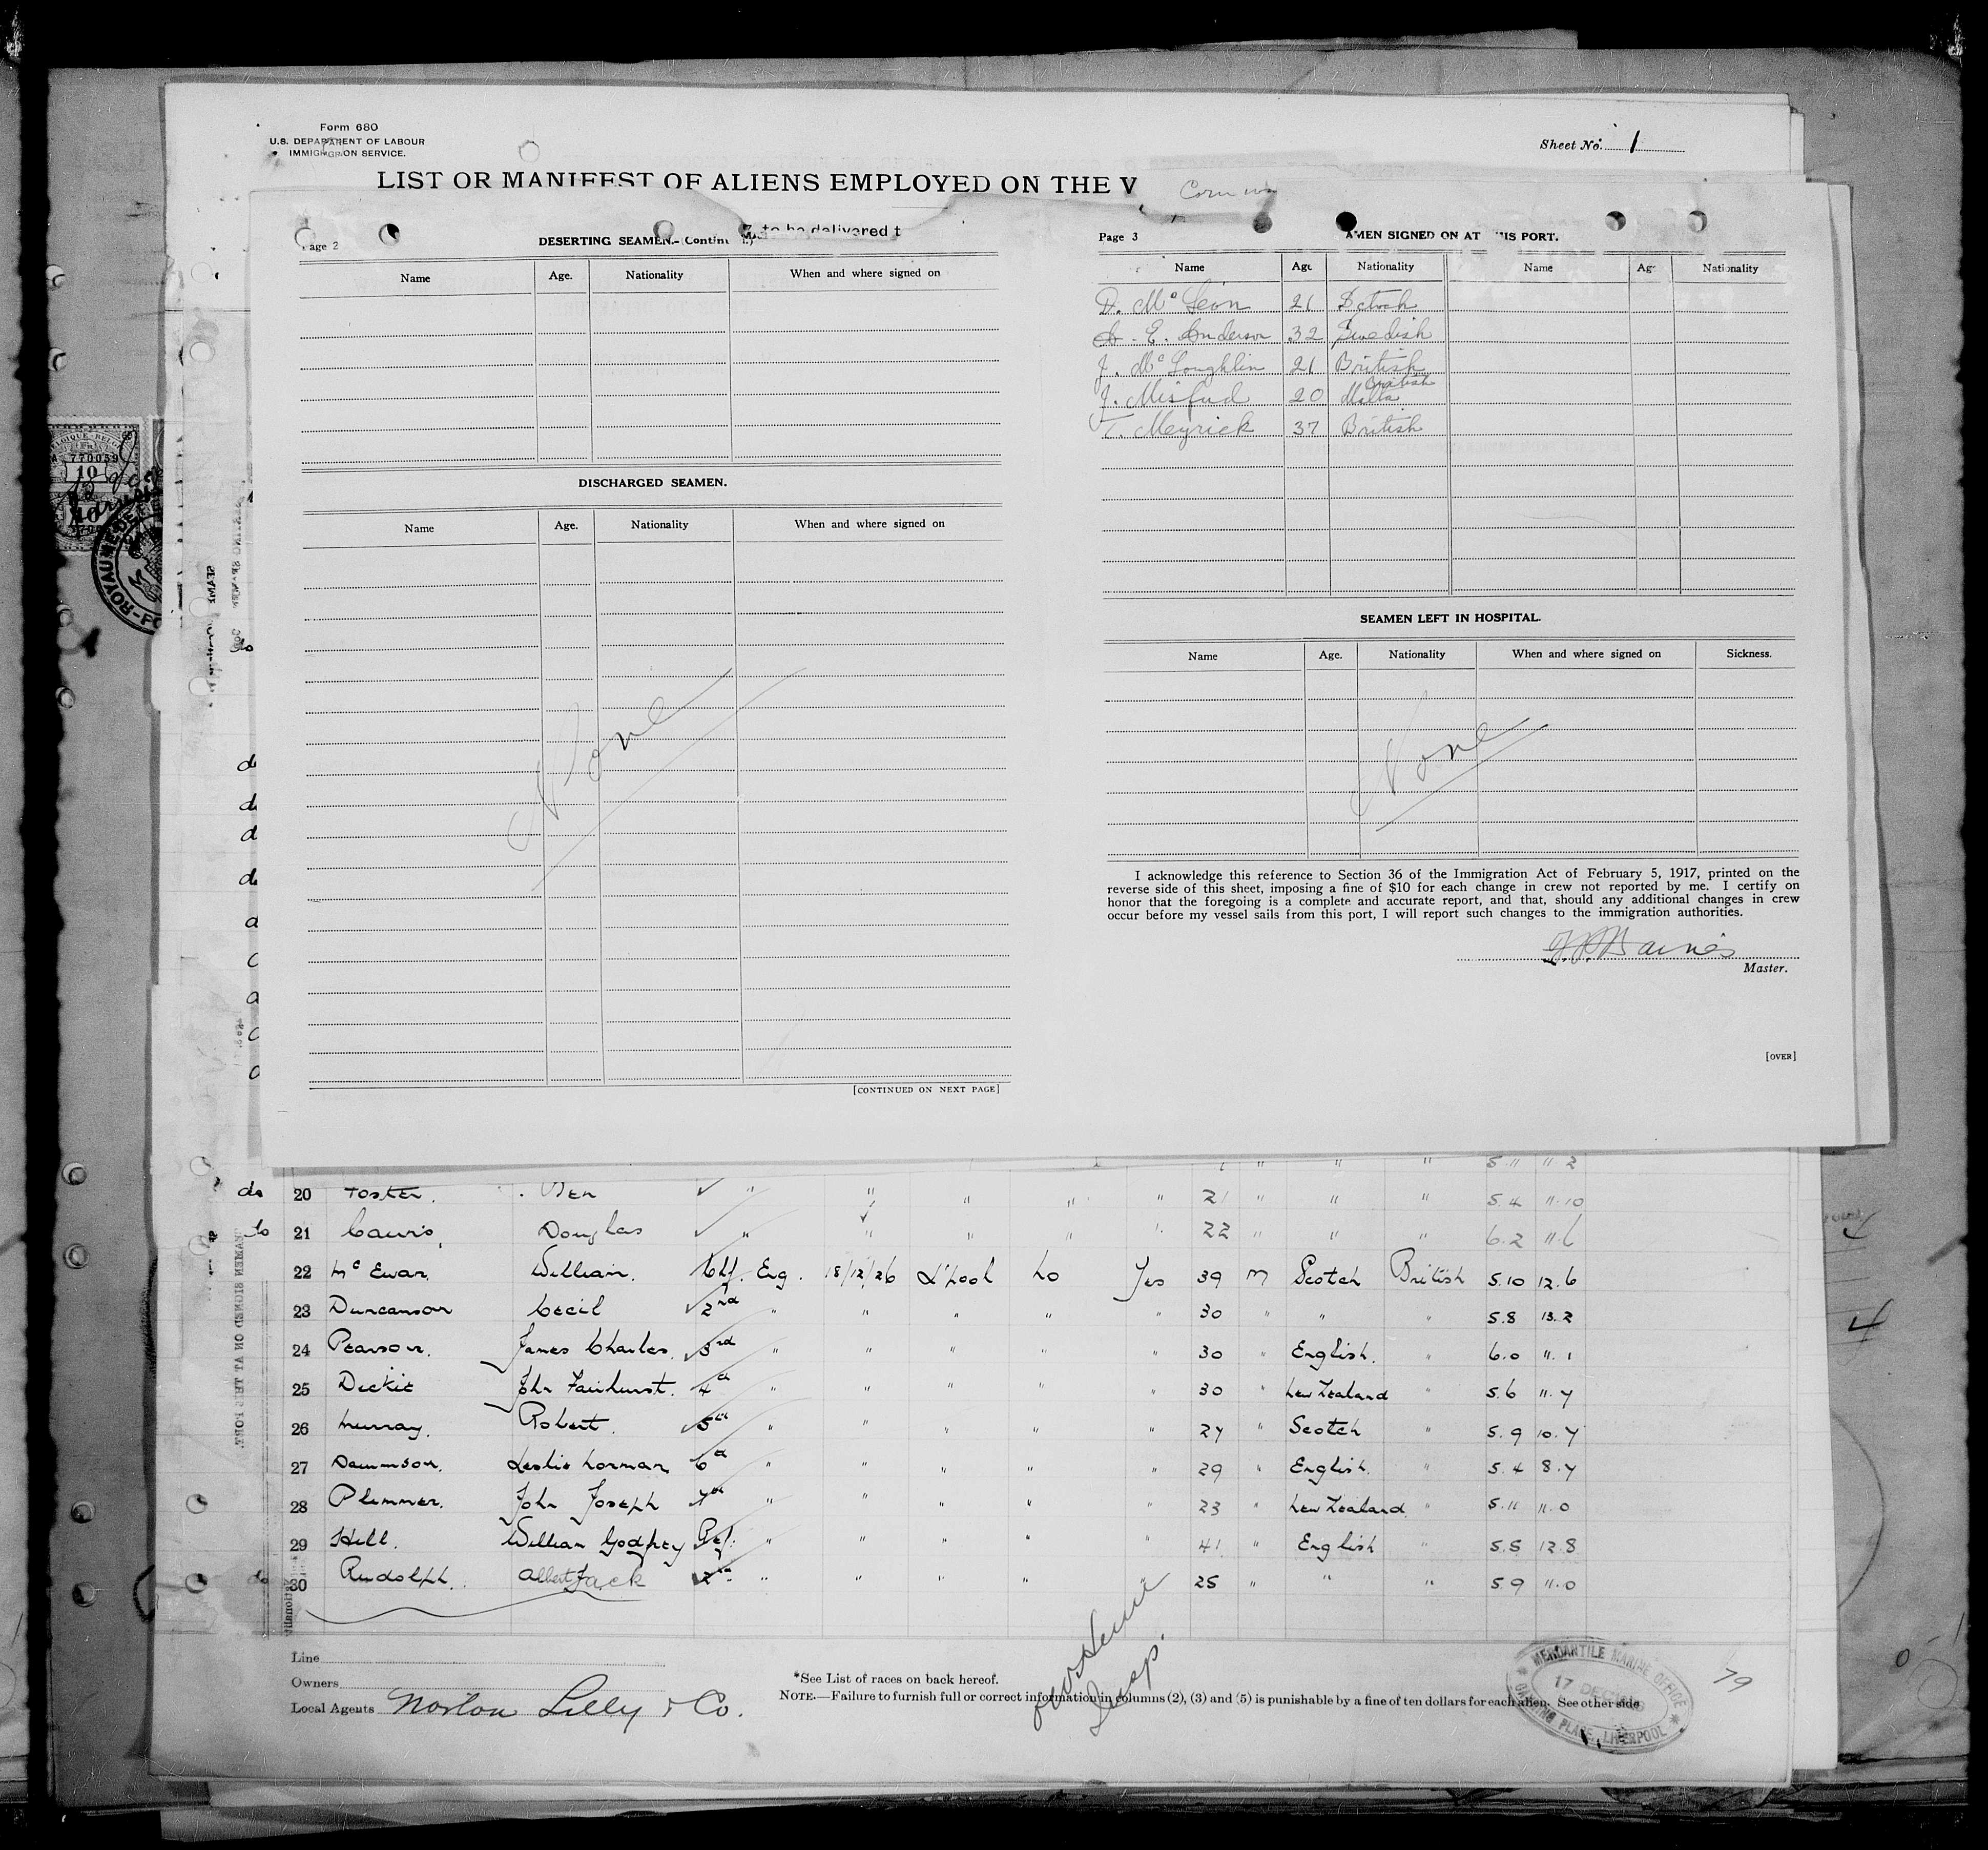 Form 680
U.S. DEPARTMENT OF LABOUR
IMMIGRATION SERVICE.
Sheet No. 1
LIST OR MANIFEST OF ALIENS EMPLOYED ON THE V
to be delivered t
Page 2
DESERTING SEAMEN.-(Contin
Name Age. Nationality When and where signed on
DISCHARGED SEAMEN.
Name Age. Nationality When and where signed on
None
[CONTINUED ON NEXT PAGE]
Page 3
AMEN SIGNED ON AT HIS PORT.
Name Age Nationality Name Ag Nationality
D. Mc Leon 21 Scotch
E. Anderson 32 Swedish
J. Mc Loughlin 21 British
J. Misfud 20 Malta British
T. Meyrick 37 British
SEAMEN LEFT IN HOSPITAL.
Name Age. Nationality When and where signed on Sickness.
None
I acknowledge this reference to Section 36 of the Immigration Act of February 5, 1917, printed on the
reverse side of this sheet, imposing a fine of $10 for each change in crew not reported by me. I certify on
honor that the foregoing is a complete and accurate report, and that, should any additional changes in crew
occur before my vessel sails from this port, I will report such changes to the immigration authorities.
Master.
[OVER]
" " " 5.11 11.2
do 20 Foster. Ben " " " " " 21 " " " 5.4 11.10
do 21 Douglas " " " " " 22 " " " 6.2 11.6
22 Mc Ewan. William. Chf. Eng. 18/12/26 L'pool No Yes 39 M Scotch British 5.10 12.6
23 Duncanson Cecil 2nd " " " " " 30 " " " 5.8 13.2
24 Pearson. James Charles. 3rd " " " " " 30 " English. " 6.0 11.1
25 Dickie John Fairhurst. 4th " " " " " 30 " New Zealand " 5.6 11.7
26 Murray. Robert. 5th " " " " " 27 " Scotch " 5.9 10.7
27 Leslie Norman 6th " " " " " 29 " English. " 5.4 8.7
28 Plimmer. John Joseph 7th " " " " " 23 " New Zealand " 5.11 11.0
29 Hill. William Godfrey Ref. " " " " " 41 " English " 5.5 12.8
30 Rudolph. Albert Jack 2nd " " " " " 25 " " " 5.9 11.0
Line
Owners
Local Agents Norton Lilly & Co.
*See List of races on back hereof.
NOTE.—Failure to furnish full or correct information in columns (2), (3) and (5) is punishable by a fine of ten dollars for each alien. See other side
Insp.
MERCANTILE MARINE OFFICE
17 DEC
CANNING PLACE, LIVERPOOL
79
4
770059
10